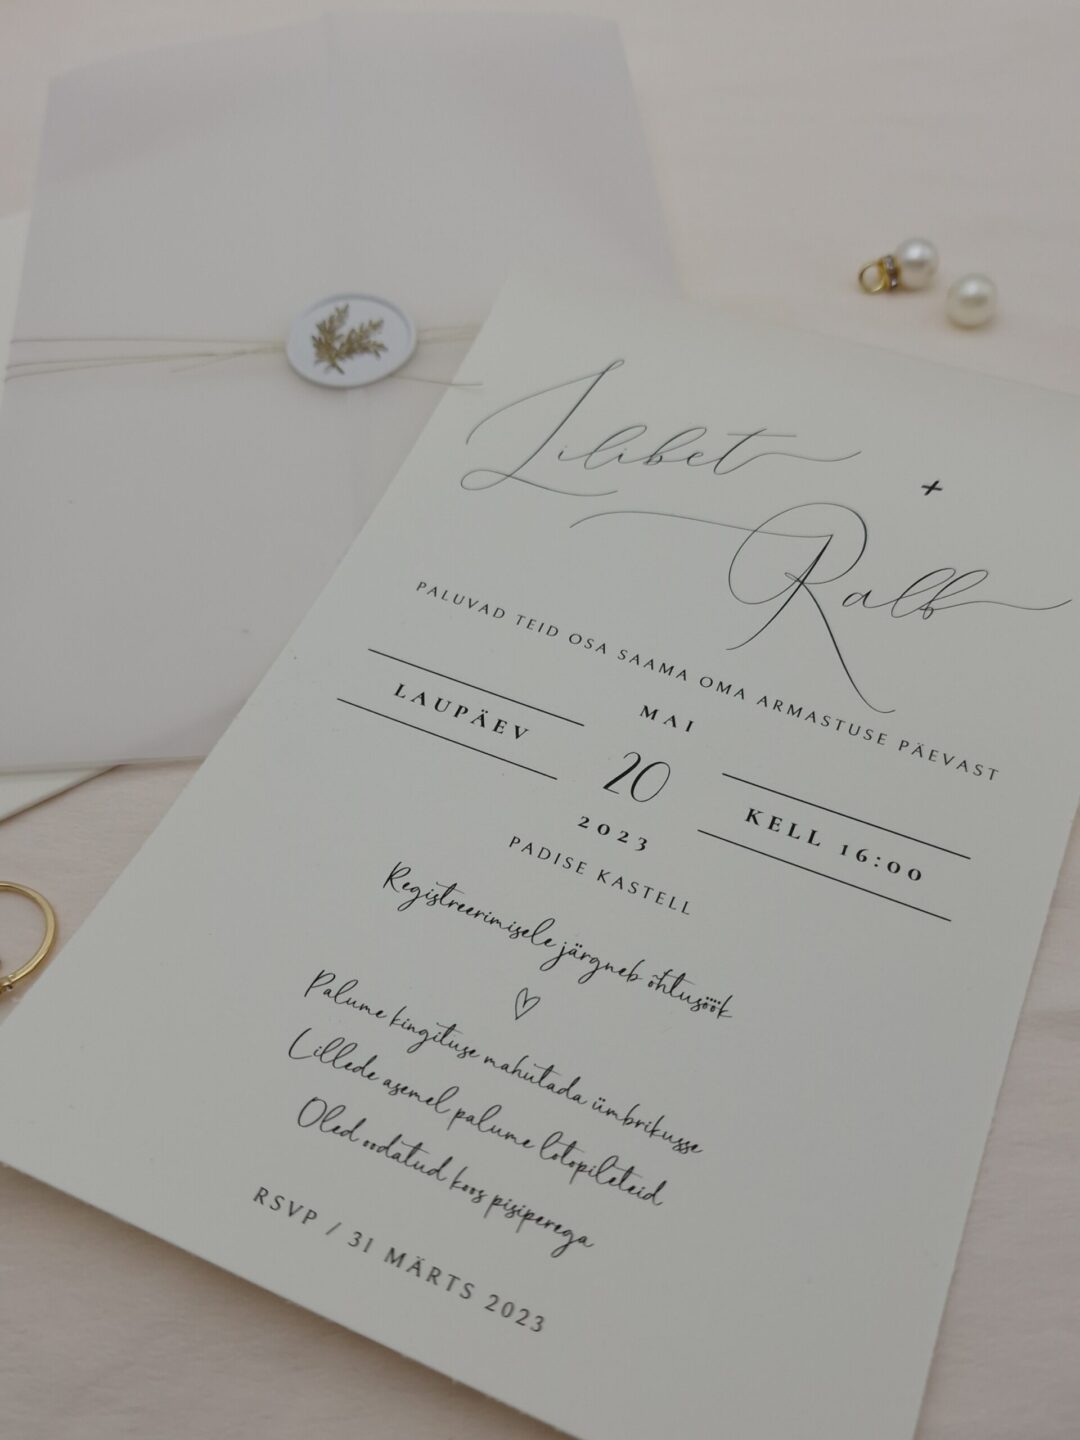 Lilibet
+
Ralf
PALUVAD TEID OSA SAAMA OMA ARMASTUSE PÄEVAST
LAUPÄEV
MAI
20
2023
KELL 16:00
PADISE KASTELL
Registreerimisele järgneb õhtusöök
Palume kingituse mahutada ümbrikusse
Lillede asemel palume lotopileteid
Oled oodatud koos pisiperega
RSVP / 31 MÄRTS 2023